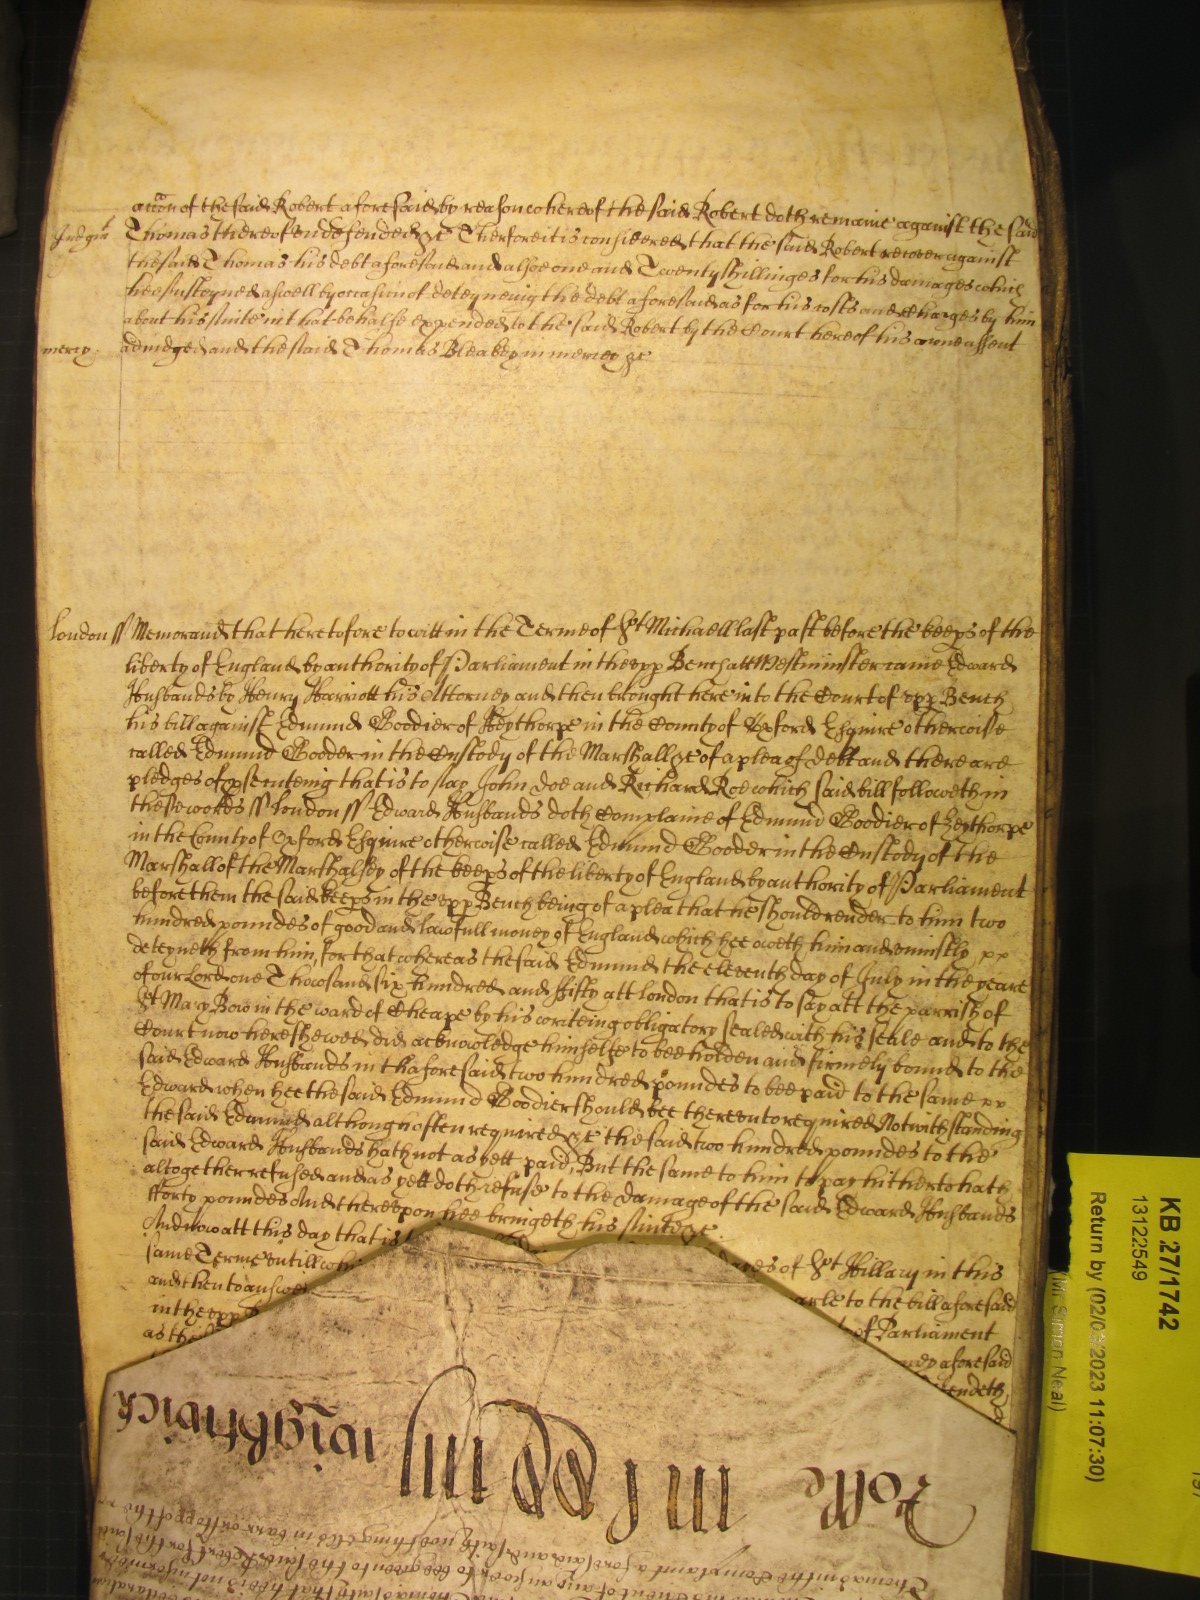 acc̃on of the said Robert aforesaid by reason whereof the said Robert doth remaine against the said
Judgm̃t Thomas thereof undefended &c Therfore it is considered that the said Robert recover against
the said Thomas his debt aforesaid and alsoe one and Twenty shillinges for his damages which
hee susteyned aswell by occasion of deteyneing the debt aforesaid as for his costs and Charges by him
about his suite in that behalfe expended to the said Robert by the Court here of his owne assent
mercy. adiudged and the said Thomas Bleakey in mercy &c
London ss Memorand that heretofore to witt in the Terme of St Michaell last past before the keeps of the
liberty of England by authority of Parliament in the upp Bench att Westminster came Edward
Husbands by Henry Harriott his Attorney and then brought here into the Court of upp Bench
his bill against Edmund Goodier of Heythorpe in the County of Oxford Esquire otherwise
called Edmund Gooder in the Custody of the Marshall &c of a plea of debt and there are
pledges of psecuteing that is to say John Doe and Richard Roe which said bill followeth in
these words ss London ss Edward Husbands doth Complaine of Edmund Goodier of Heythorpe
in the County of Oxford Esquire otherwise called Edmund Gooder in the Custody of the
Marshall of the Marshalsey of the keeps of the liberty of England by authority of Parliament
before them the said keeps in the upp Bench being of a plea that he should render to him two
hundred poundes of good and lawfull money of England which hee oweth him and uniustly
deteyneth from him, for that whereas the said Edmund the eleventh day of July in the yeare
of our Lord one Thowsand six hundred and fifty att London that is to say att the parrish of
St Mary Bow in the ward of Cheape by his writeing obligatory sealed with his seale and to the
Court now here shewed did acknowledge himselfe to bee holden and firmely bound to the
said Edward Husbands in th aforesaid two hundred poundes to bee paid to the same
Edward when hee the said Edmund Goodier should bee thereunto required Notwithstanding
the said Edmund although often required &c the said two hundred poundes to the
said Edward Husbands hath not as yett paid, But the same to him to pay hitherto hath
altogether refused and as yett doth refuse to the damage of the said Edward Husbands
fforty poundes And thereupon hee bringeth his suite &c.
And now att this day that is
same Terme untill wch of St Hillary in this
and then to answer to the bill aforesaid
in the upp of Parliament
as the aforesaid
Wightwick
KB 27/1742
13122549
Return by (02/03/2023 11:07:30)
(Mr Simon Neal)